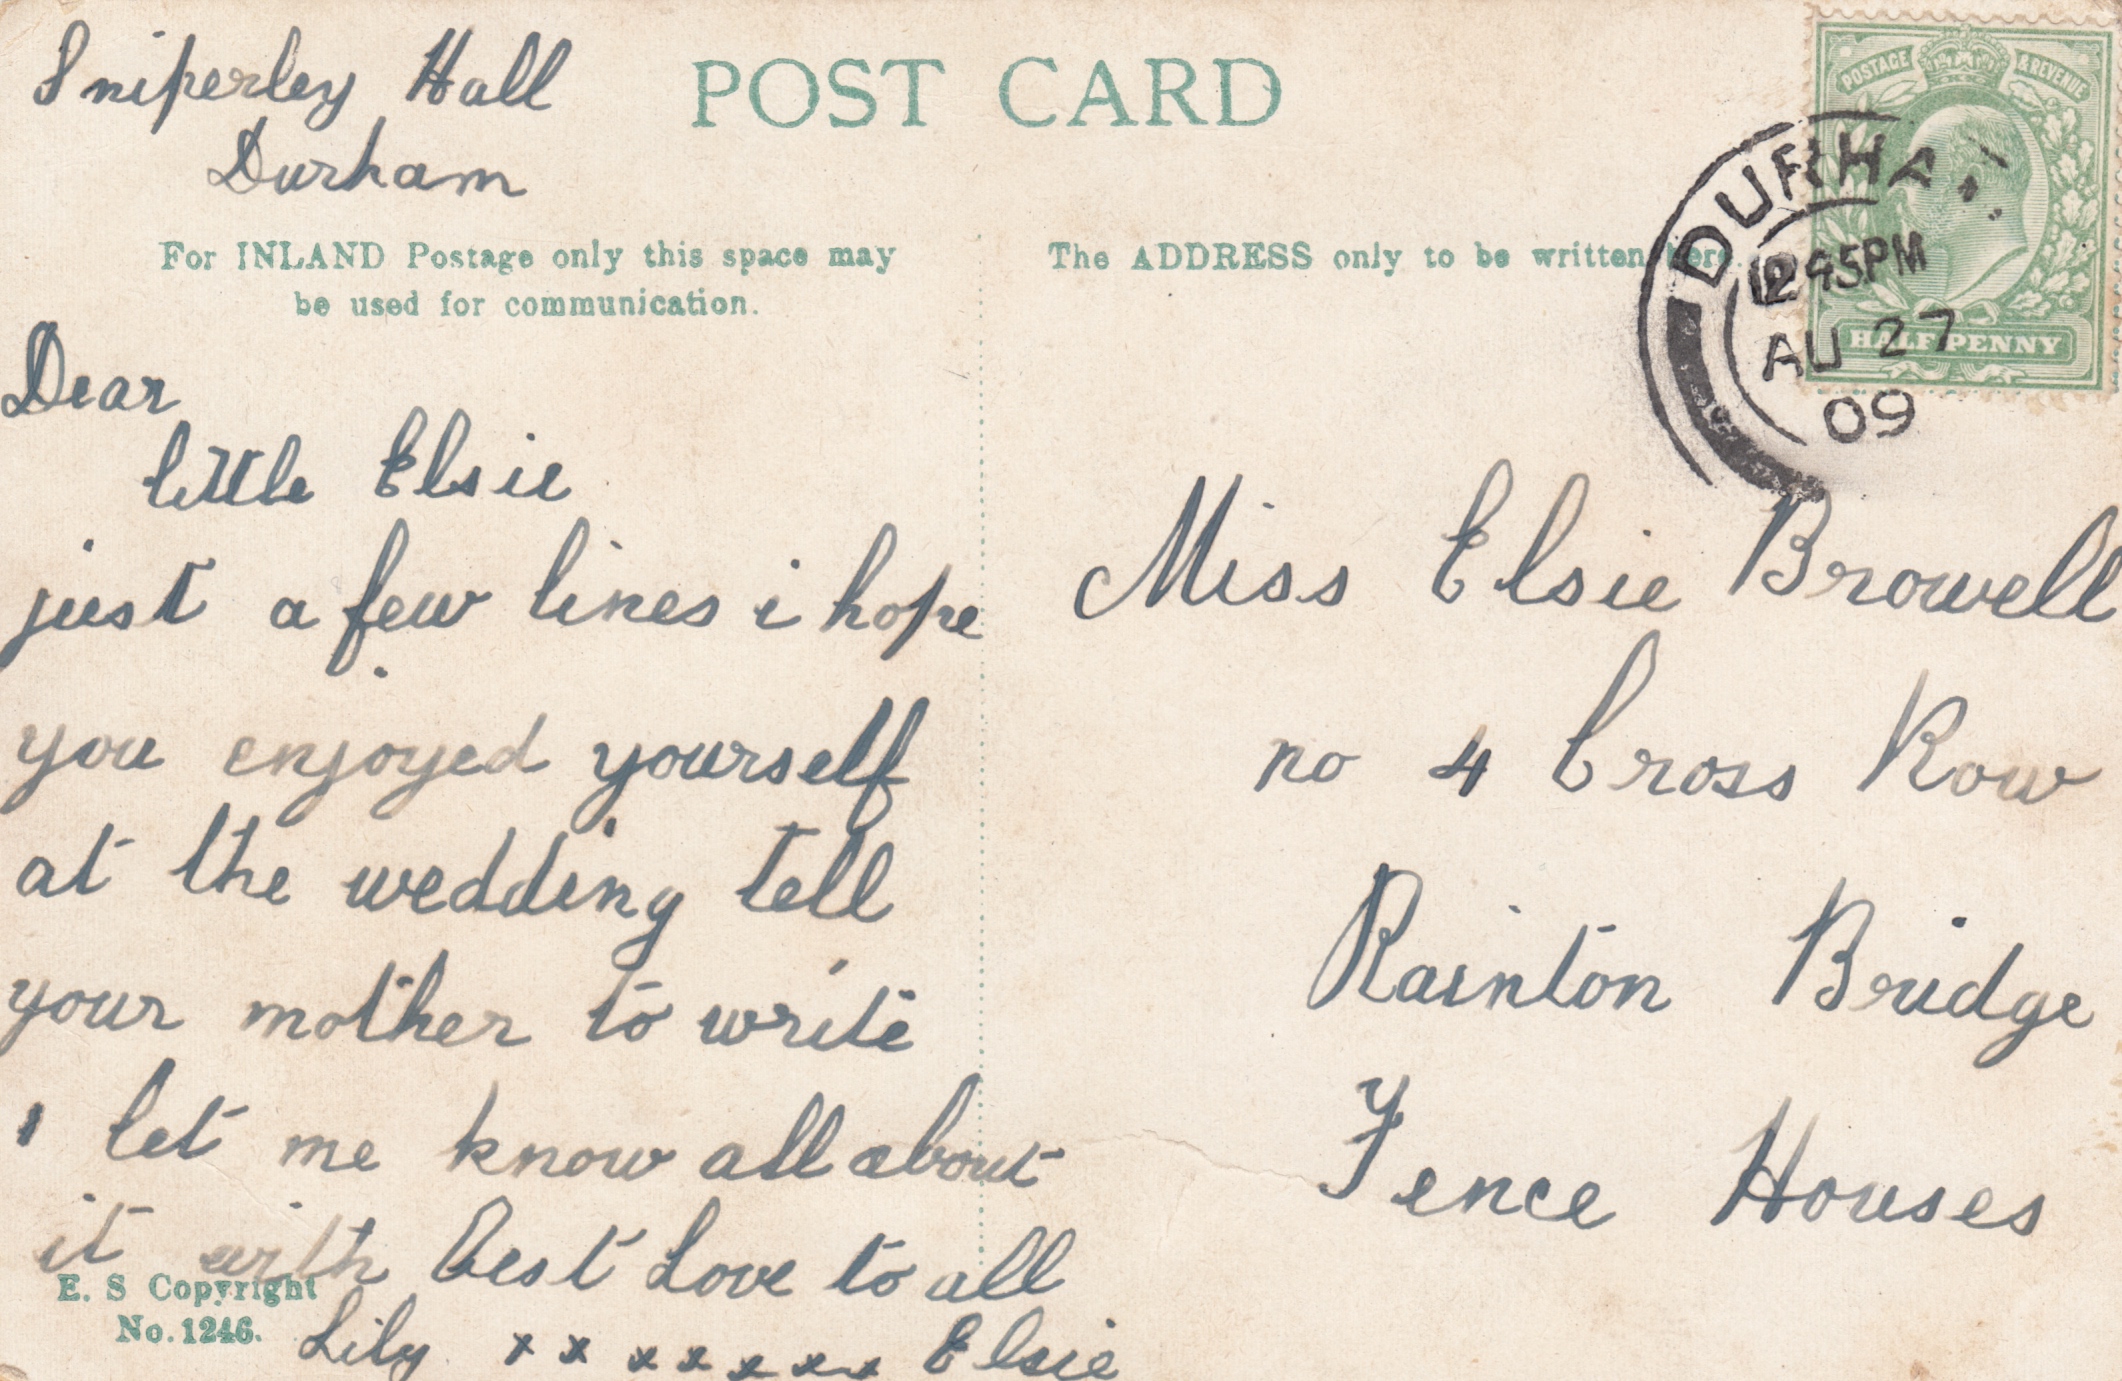 Sniperley Hall
Durham
POST CARD
For INLAND Postage only this space may
be used for communication.
The ADDRESS only to be written here.
POSTAGE & REVENUE
HALFPENNY
DURHAM
12 45PM
AU 27
09
Dear
little Elsie
just a few lines i hope
you enjoyed yourself
at the wedding tell
your mother to write
let me know all about
it with Best Love to all
Lily x x x x x x x x Elsie
E. S Copyright
No. 1246.
Miss Elsie Browell
no 4 Cross Row
Rainton Bridge
Fence Houses